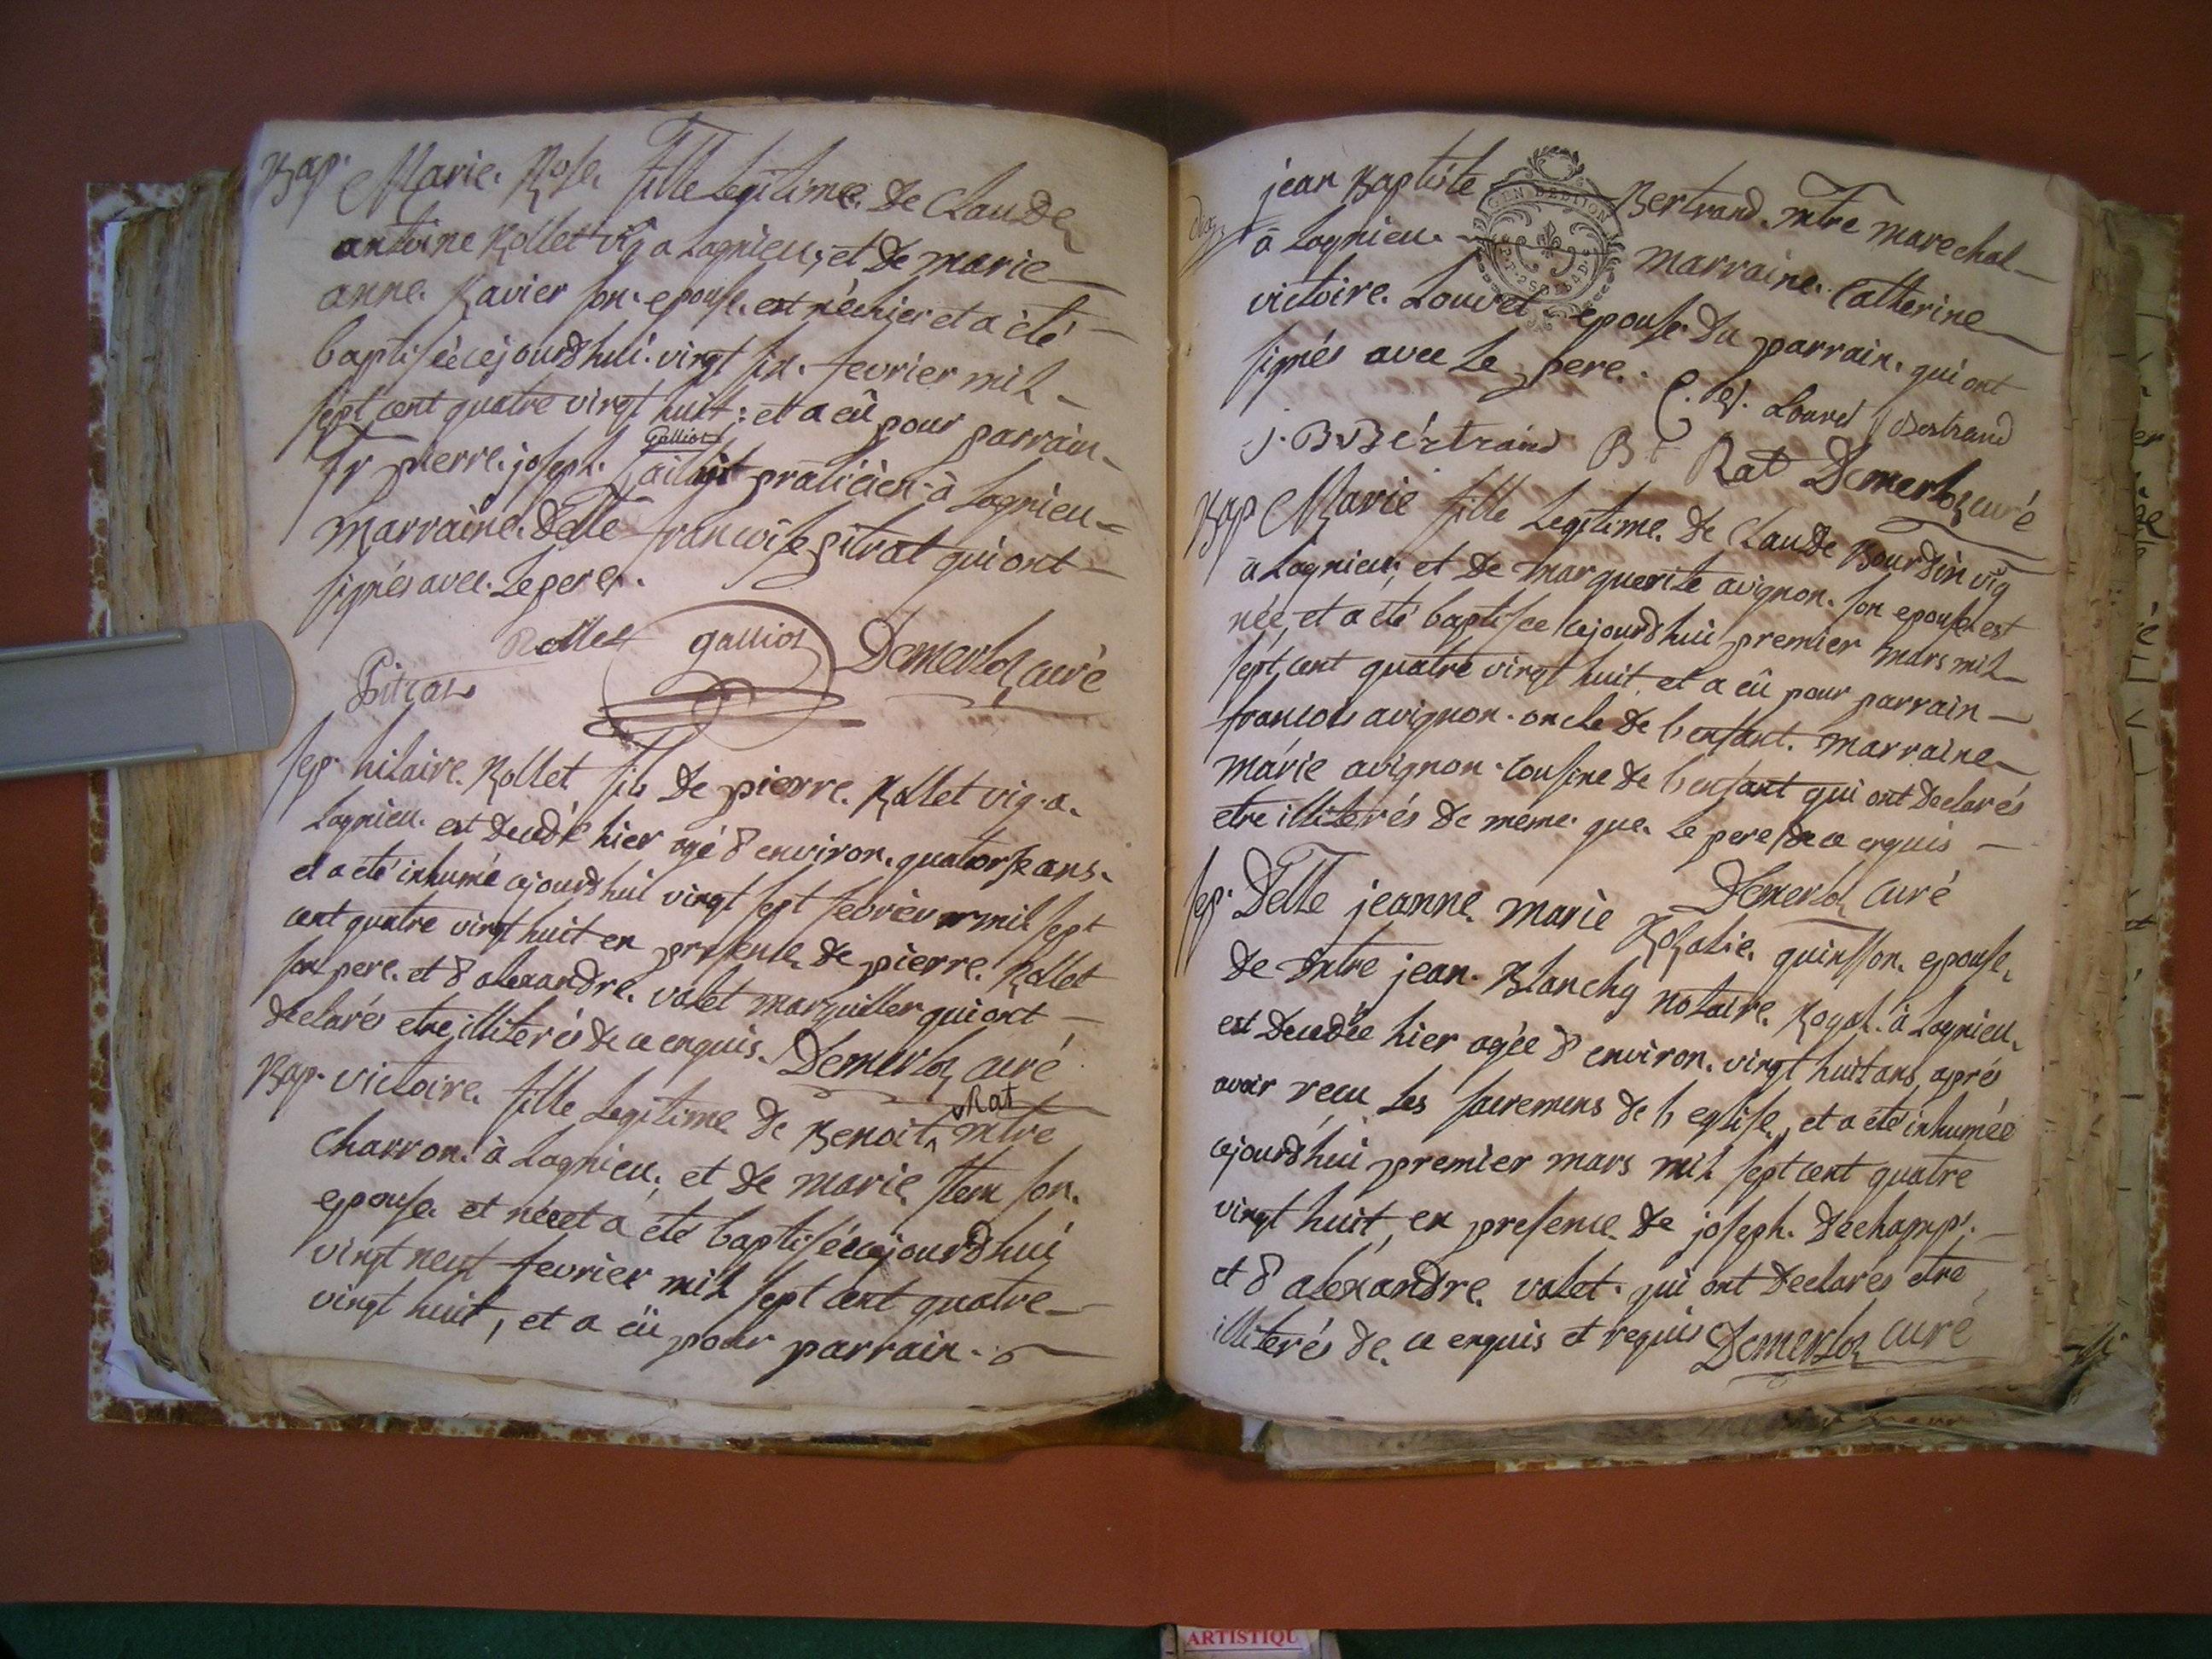 Bap. Marie. Rose. fille Legitime. De Claude
antoine Rollet vig a Lagnieu, et De marie
anne. Ravier son. epouse. est née hier et a été
baptisée cejourdhui. vingt six. fevrier mil
sept cent quatre vingt huit: et a eû pour parrain
Sr pierre. joseph. Galliot praticien à Lagnieu
marraine. Delle francoise pitrat qui ont
signés avec. Le pere.
Rollet galliot Demerloz curé
Pitrat
sep. hilaire. Rollet fils De pierre. Rollet vig. a.
Lagnieu. est decedé hier agé d'environ. quatorse ans.
et a été inhumé cejourdhui vingt sept fevrier mil sept
cent quatre vingt huit en presence. de pierre. Rollet
son pere. et d alexandre. valet marguiller qui ont
declarés etre illiterés de ce enquis. Demerloz curé
Bap. victoire. fille Legitime. De Benoit Rat mtre
charron. à Lagnieu, et de marie. stem son.
epouse. et née et a été baptisée cejourdhui
vingt neuf fevrier mil sept cent quatre
vingt huit, et a eû pour parrain.
jean Baptiste Bertrand. mtre marechal
à Lagnieu. marraine. Catherine
victoire. Louvet epouse. Du parrain. qui ont
signés avec Le pere.
C. V. Louvet Bertrand
J. B Bértrand B Rat Demerloz curé
Bap Marie fille Legitime. De Claude Bourdin vig
à Lagnieu, et De marguerite avignon. son epouse. est
née et a été baptisée cejourdhui premier mars mil
sept cent quatre vingt huit et a eû pour parrain
francois avignon. oncle De l enfant. marraine
marie avignon. cousine de l enfant qui ont declarés
etre illiterés de meme. que. Le pere de ce enquis
Demerloz curé
sep. Delle jeanne. marie Rosalie. quinsson. epouse.
De mtre jean. Blanchy notaire. Royal. à Lagnieu.
est decedée hier agée d environ. vingt huit ans, aprés
avoir recu Les sacremens de l eglise. et a été inhumée
cejourdhui premier mars mil sept cent quatre
vingt huit, en presence. de joseph. Dechamps.
et d alexandre. valet. qui ont declarés etre
illiterés de. ce enquis et requis Demerloz curé
ARTISTIQU